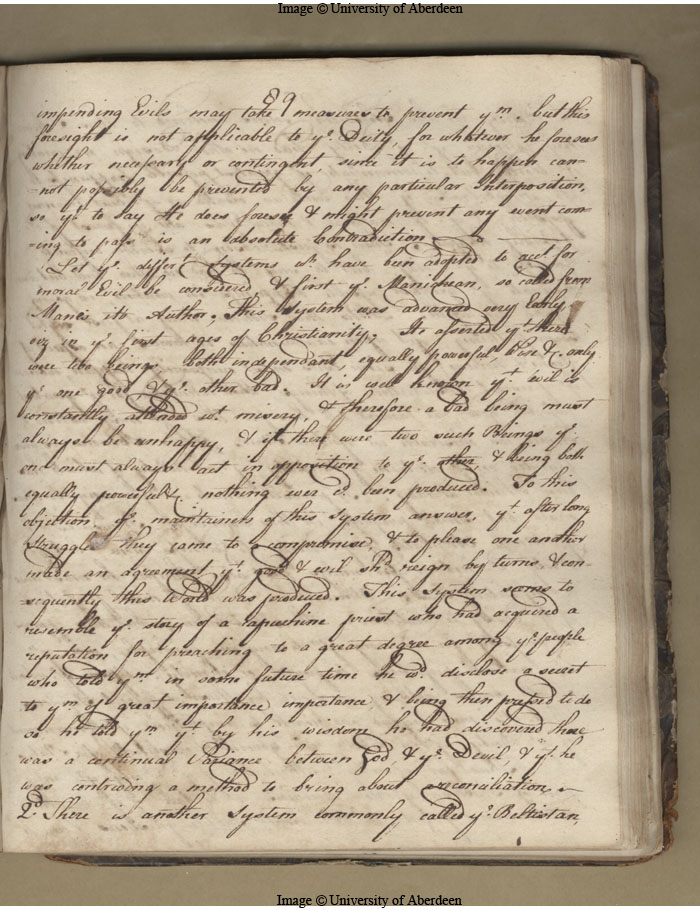 Image © University of Aberdeen
89
impending Evils may take measures to prevent ym. but this
foresight is not applicable to ye. Deity, for whatever he foresees
whether necessary or contingent, since it is to happen can-
-not possibly be prevented by any particular Interposition,
so yt. to say He does foresee & might prevent any event com-
-ing to pass is an absolute Contradiction
Let ye. differt. Systems wh. have been adopted to acct. for
moral Evil be considered & first ye. Manichean, so called from
Manes its Author. This System was advanced very Early
in ye. first ages of Christianity; It asserted yt. there
were two beings, both independant, equally powerful, Wise &c. only
ye. one good & ye. other bad. It is well known yt. evil is
constantly attended wt. misery, & therefore a bad being must
always be unhappy, & if there were two such Beings ye.
one must always act in opposition to ye. other, & being both
equally powerful &c. nothing ever cd. been produced. To this
objection ye. maintainers of this System answer, yt. after long
struggles they came to compromise, & to please one another
made an agreement yt. good & evil shd. reign by turns, & con-
sequently this World was produced. This System seems to
resemble ye. story of a capuchine priest who had acquired a
reputation for preaching to a great degree among ye. people
who told ym. in some future time he wd. disclose a secret
to ym of great importance importance & being then pressed to do
so he told ym yt. by his wisdom he had discovered there
was a continual Variance between God, & ye. Devil, & yt. he
was contriving a method to bring about a reconciliation.
2d. There is another System commonly called ye. Beltistan,
Image © University of Aberdeen